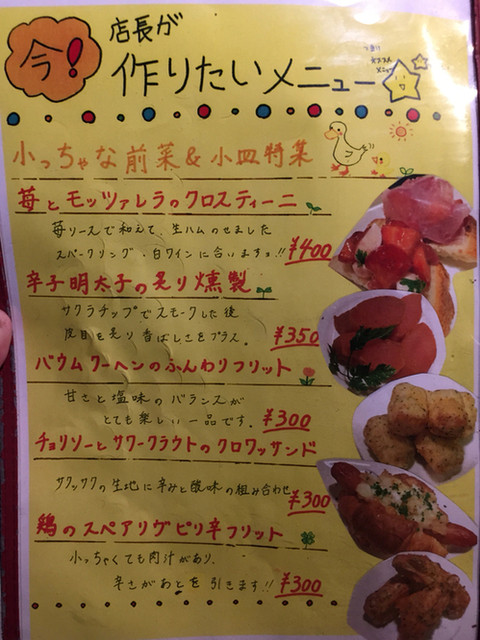 今!
店長が
作りたいメニュー
つまり
オススメ
メニュー
小っちゃな前菜&小皿特集
苺とモッツァレラのクロスティーニ
苺ソースで和えて、生ハムのせました
スパークリング・白ワインに合いますョ!! ¥400
辛子明太子の炙り燻製
サクラチップでスモークした後
皮目を炙り香ばしさをプラス。 ¥350
バウムクーヘンのふんわりフリット
甘さと塩味のバランスが
とても楽しい一品です。 ¥300
チョリソーとサワークラウトのクロワッサンド
サクッサクの生地に辛みと酸味の組み合わせ ¥300
鶏のスペアリブピリ辛フリット
小っちゃくても肉汁があり、
辛さがあとを引きます!! ¥300